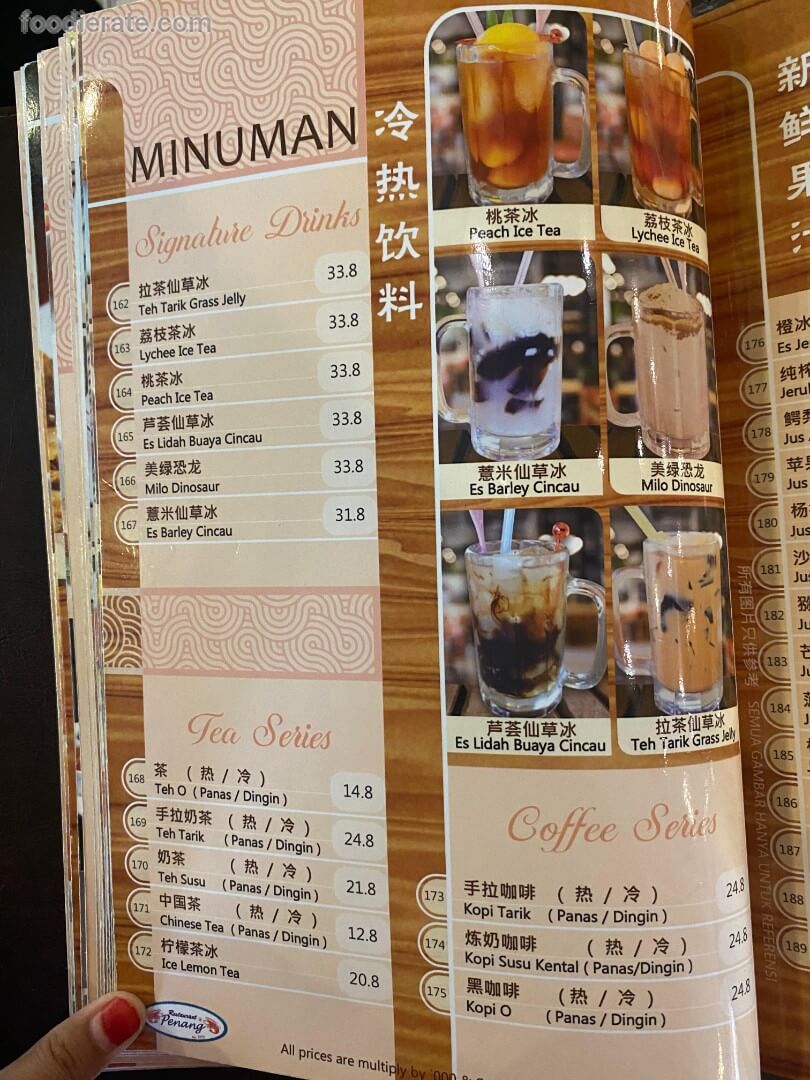 foodierate.com
MINUMAN
冷热饮料
Signature Drinks
162 拉茶仙草冰 33.8
Teh Tarik Grass Jelly
163 荔枝茶冰 33.8
Lychee Ice Tea
164 桃茶冰 33.8
Peach Ice Tea
165 芦荟仙草冰 33.8
Es Lidah Buaya Cincau
166 美绿恐龙 33.8
Milo Dinosaur
167 薏米仙草冰 31.8
Es Barley Cincau
Tea Series
168 茶 ( 热 / 冷 ) 14.8
Teh O ( Panas / Dingin )
169 手拉奶茶 ( 热 / 冷 ) 24.8
Teh Tarik ( Panas / Dingin )
170 奶茶 ( 热 / 冷 ) 21.8
Teh Susu ( Panas / Dingin )
171 中国茶 ( 热 / 冷 ) 12.8
Chinese Tea ( Panas / Dingin )
172 柠檬茶冰 20.8
Ice Lemon Tea
Restaurant
Penang
All prices are multiply by '000 &
桃茶冰
Peach Ice Tea
荔枝茶冰
Lychee Ice Tea
薏米仙草冰
Es Barley Cincau
美绿恐龙
Milo Dinosaur
芦荟仙草冰
Es Lidah Buaya Cincau
拉茶仙草冰
Teh Tarik Grass Jelly
Coffee Series
173 手拉咖啡 ( 热 / 冷 ) 24.8
Kopi Tarik ( Panas / Dingin )
174 炼奶咖啡 ( 热 / 冷 ) 24.8
Kopi Susu Kental ( Panas/Dingin )
175 黑咖啡 ( 热 / 冷 ) 24.8
Kopi O ( Panas / Dingin )
所有图片只供参考 SEMUA GAMBAR HANYA UNTUK REFERENSI
新鲜果汁
176 橙冰
Es Je
177 纯榨
Jeru
178 鳄梨
Jus
179 苹果
Jus
180 杨
Jus
181 沙
Jus
182
Ju
183 芒
Ju
184
185
186
187
188
189